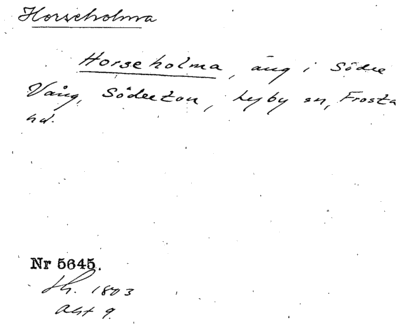 Horseholma
Horseholma, äng i Södre
Vång, Södertou, Lyby sn, Frosta
hd.
Nr 5645.
Sk. 1803
Akt 9.